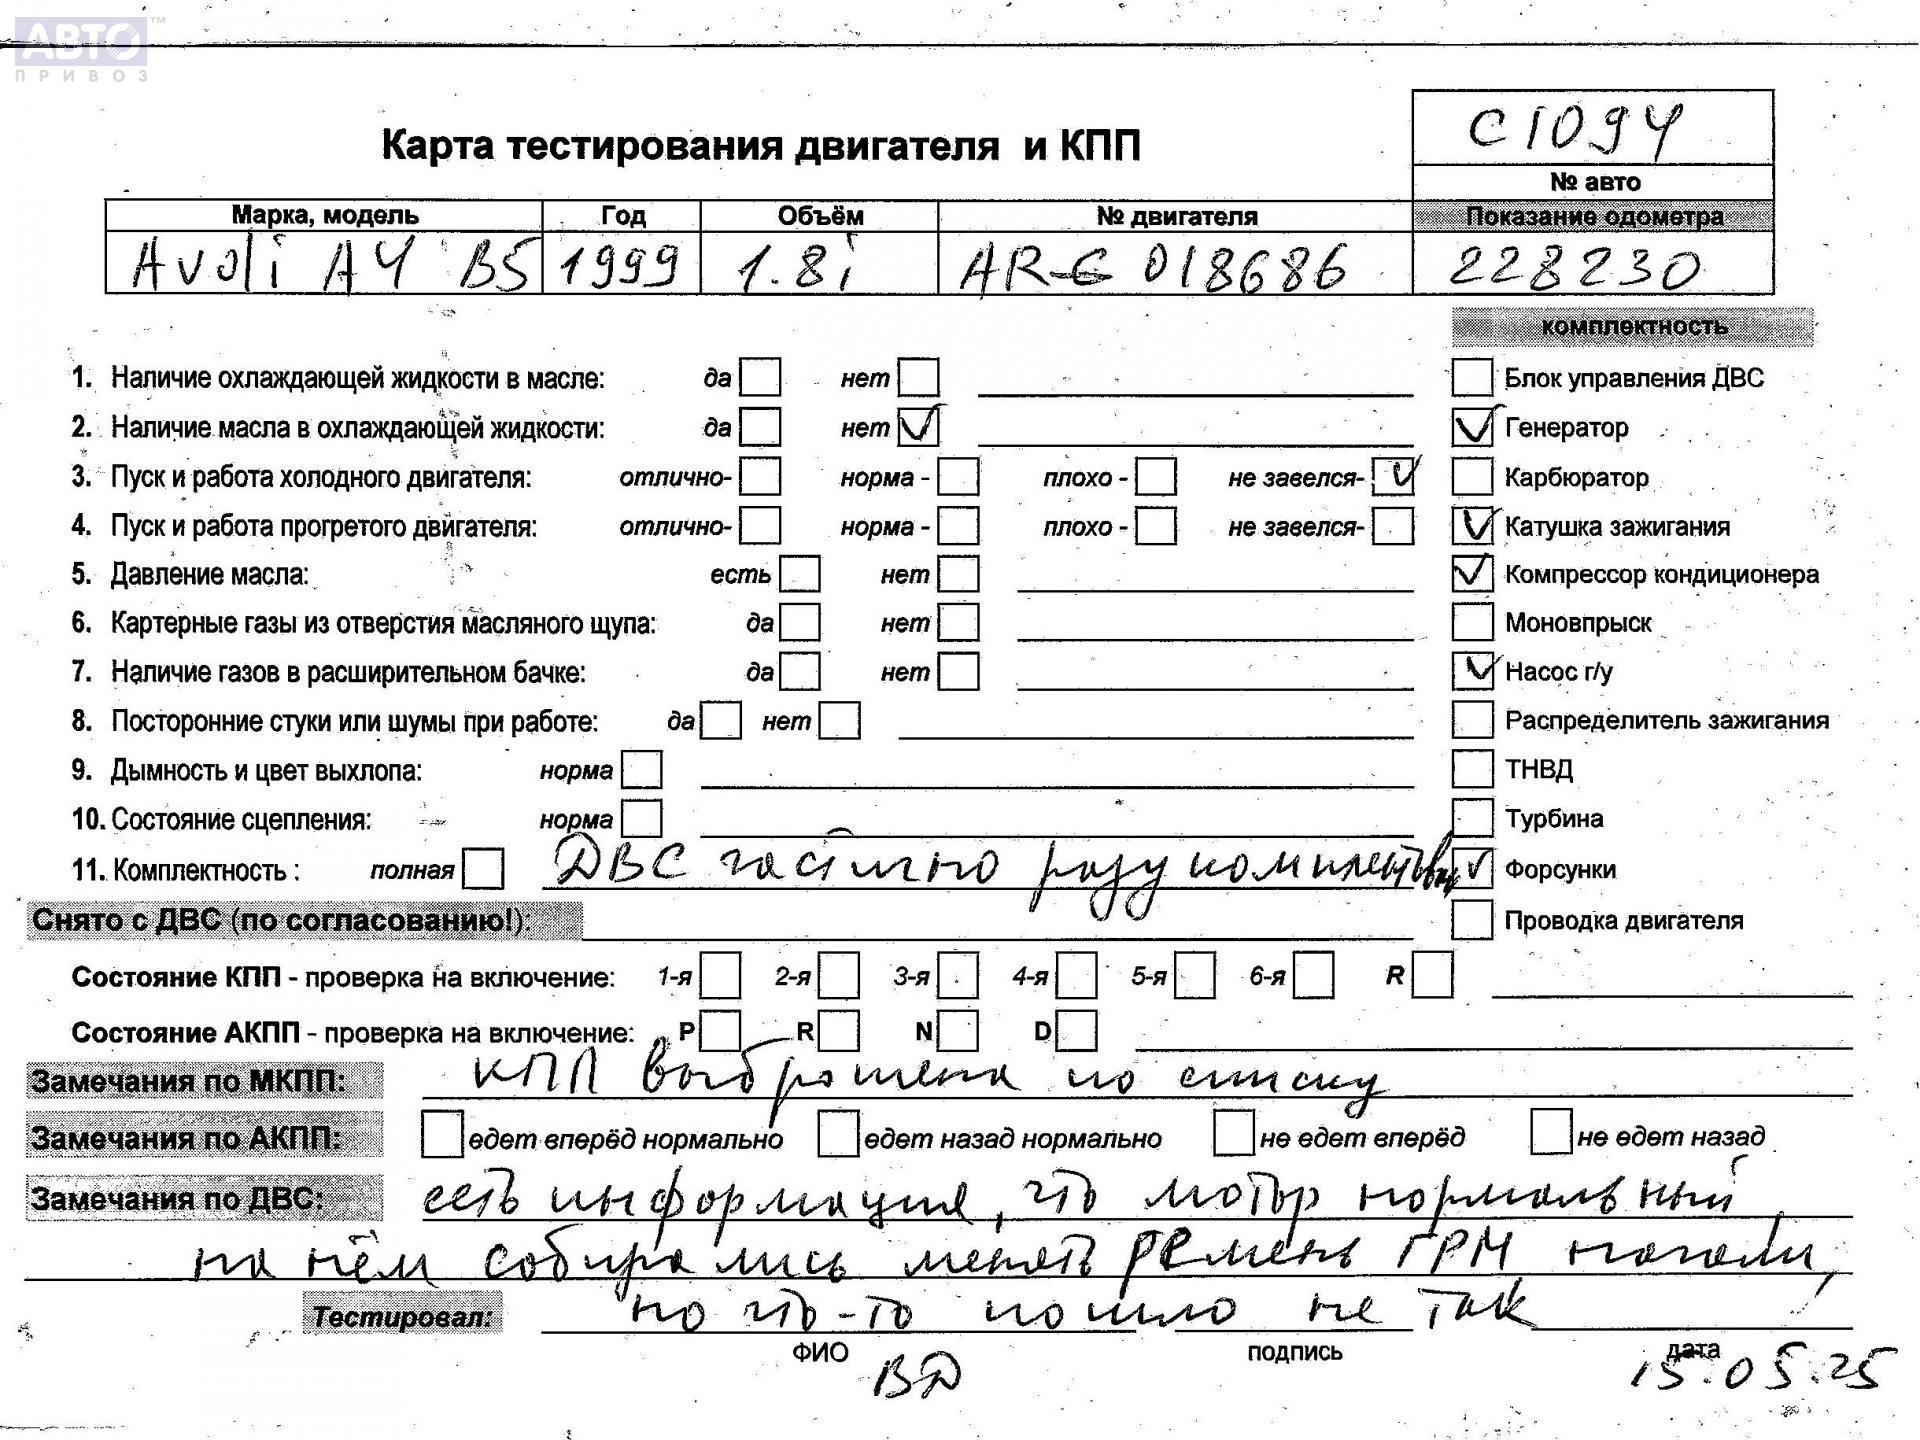 АВТО™
ПРИВОЗ
C1094
Карта тестирования двигателя и КПП
№ авто
Марка, модель Год Объём № двигателя Показание одометра
Audi A4 B5 1999 1.8i ARG 018686 228230
комплектность
1. Наличие охлаждающей жидкости в масле: да нет Блок управления ДВС
2. Наличие масла в охлаждающей жидкости: да нет ✓ ✓ Генератор
3. Пуск и работа холодного двигателя: отлично- норма - плохо - не завелся- ✓ Карбюратор
4. Пуск и работа прогретого двигателя: отлично- норма - плохо - не завелся- ✓ Катушка зажигания
5. Давление масла: есть нет ✓ Компрессор кондиционера
6. Картерные газы из отверстия масляного щупа: да нет Моновпрыск
7. Наличие газов в расширительном бачке: да нет ✓ Насос г/у
8. Посторонние стуки или шумы при работе: да нет Распределитель зажигания
9. Дымность и цвет выхлопа: норма ТНВД
10. Состояние сцепления: норма Турбина
11. Комплектность : полная ДВС частично разукомплектован ✓ Форсунки
Снято с ДВС (по согласованию!): Проводка двигателя
Состояние КПП - проверка на включение: 1-я 2-я 3-я 4-я 5-я 6-я R
Состояние АКПП - проверка на включение: P R N D
Замечания по МКПП: КПП выброшена по списку
Замечания по АКПП: едет вперёд нормально едет назад нормально не едет вперёд не едет назад
Замечания по ДВС: есть информация, что мотор нормальный
на нём собирались менять ремень ГРМ начали,
Тестировал: но что-то пошло не так
ФИО подпись дата
ВД 15.05.25